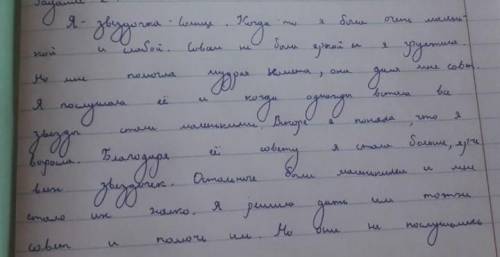 Задание 2
Я - звездочка - Солнце. Когда-то я была очень малень-
кой и слабой. Совсем не была яркой и я грустила.
Но мне помогла мудрая Комета, она дала мне совет.
Я послушала её и когда однажды встала все
звезды стали маленькими. Вскоре я поняла, что я
выросла. Благодаря её совету я стала больше, ярче
всех звездочек. Остальные были маленькими и мне
стало их жалко. Я решила дать им тоже
совет и помочь им. Но они не послушались